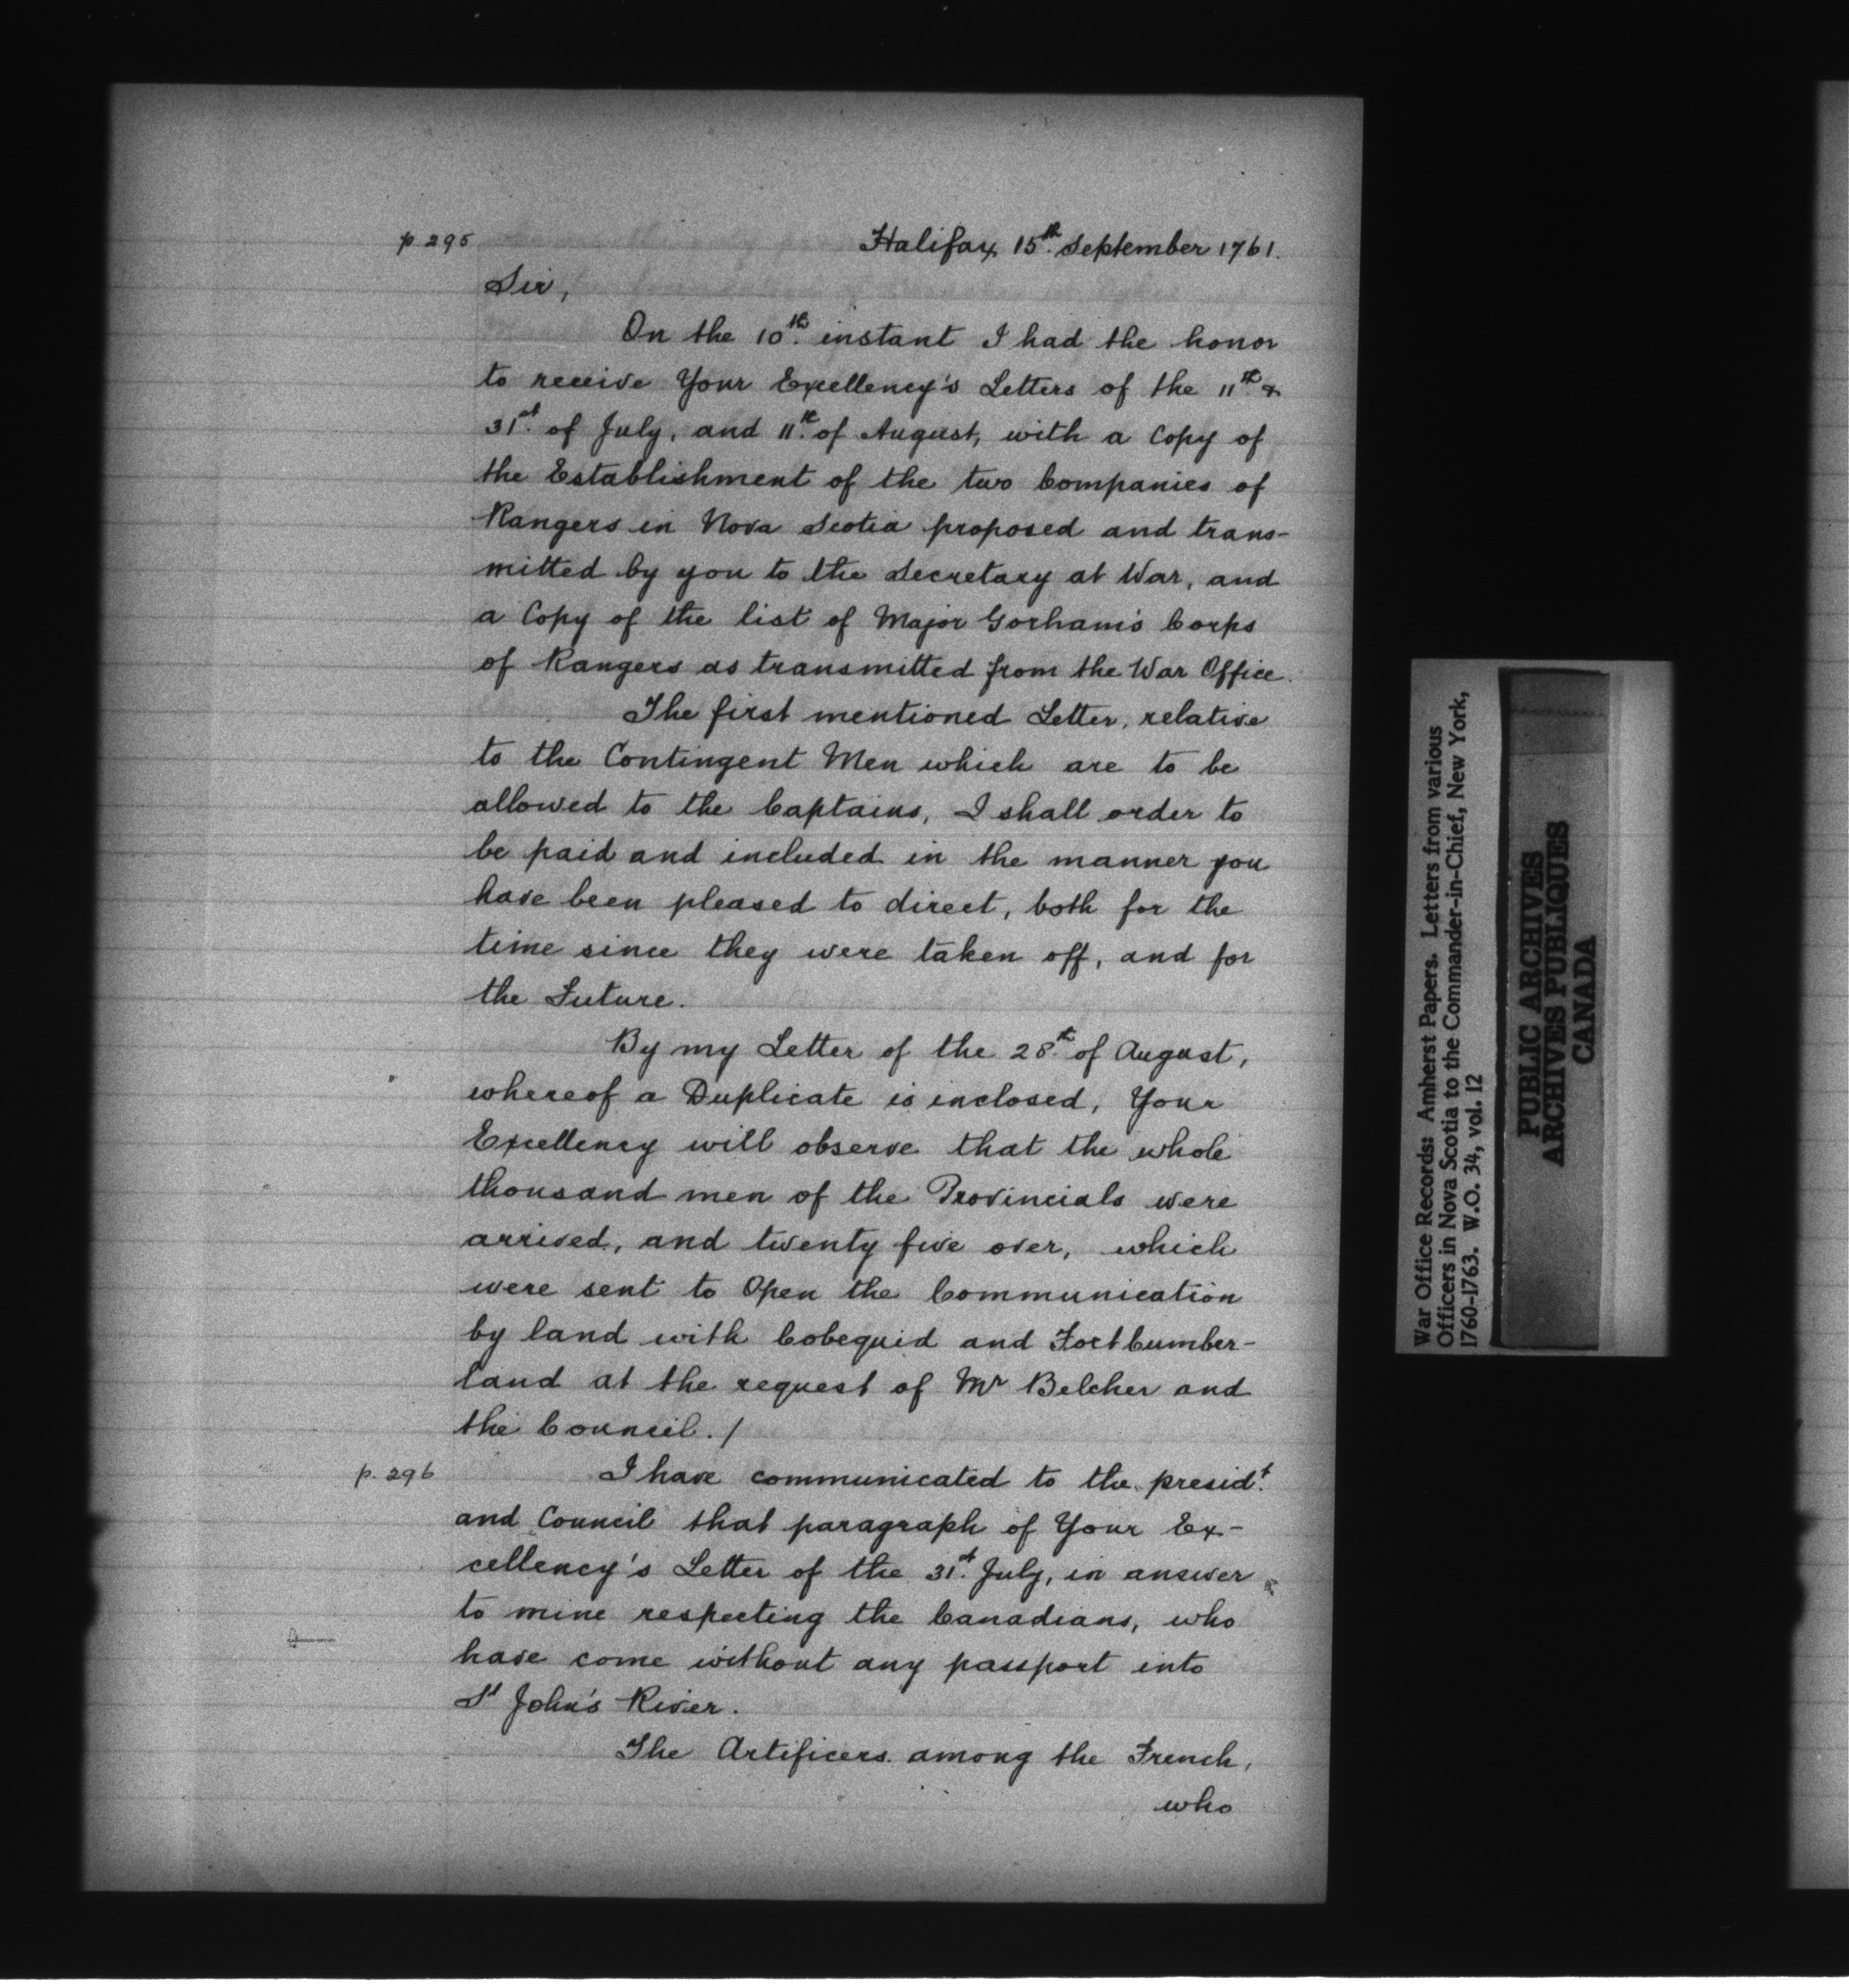 p. 295
Halifax, 15th. September 1761.
Sir,
On the 10th. instant I had the honor
to receive Your Excellency's Letters of the 11th. &
31st. of July, and 11th. of August, with a Copy of
the Establishment of the two Companies of
Rangers in Nova Scotia proposed and trans-
mitted by you to the Secretary at War, and
a Copy of the list of Major Gorham's Corps
of Rangers as transmitted from the War Office.
The first mentioned Letter, relative
to the Contingent Men which are to be
allowed to the Captains, I shall order to
be paid and included in the manner you
have been pleased to direct, both for the
time since they were taken off, and for
the Future.
By my Letter of the 28th. of August,
whereof a Duplicate is inclosed, Your
Excellency will observe that the whole
thousand men of the Provincials were
arrived, and twenty five over, which
were sent to Open the Communication
by land with Cobequid and Fort Cumber-
land at the request of Mr Belcher and
the Council. /
p. 296
I have communicated to the presidt.
and Council that paragraph of Your Ex-
cellency's Letter of the 31st. July, in answer
to mine respecting the Canadians, who
have come without any passport into
St John's River.
The Artificers among the French,
who
War Office Records: Amherst Papers. Letters from various
Officers in Nova Scotia to the Commander-in-Chief, New York,
1760-1763. W.O. 34, vol. 12
PUBLIC ARCHIVES
ARCHIVES PUBLIQUES
CANADA